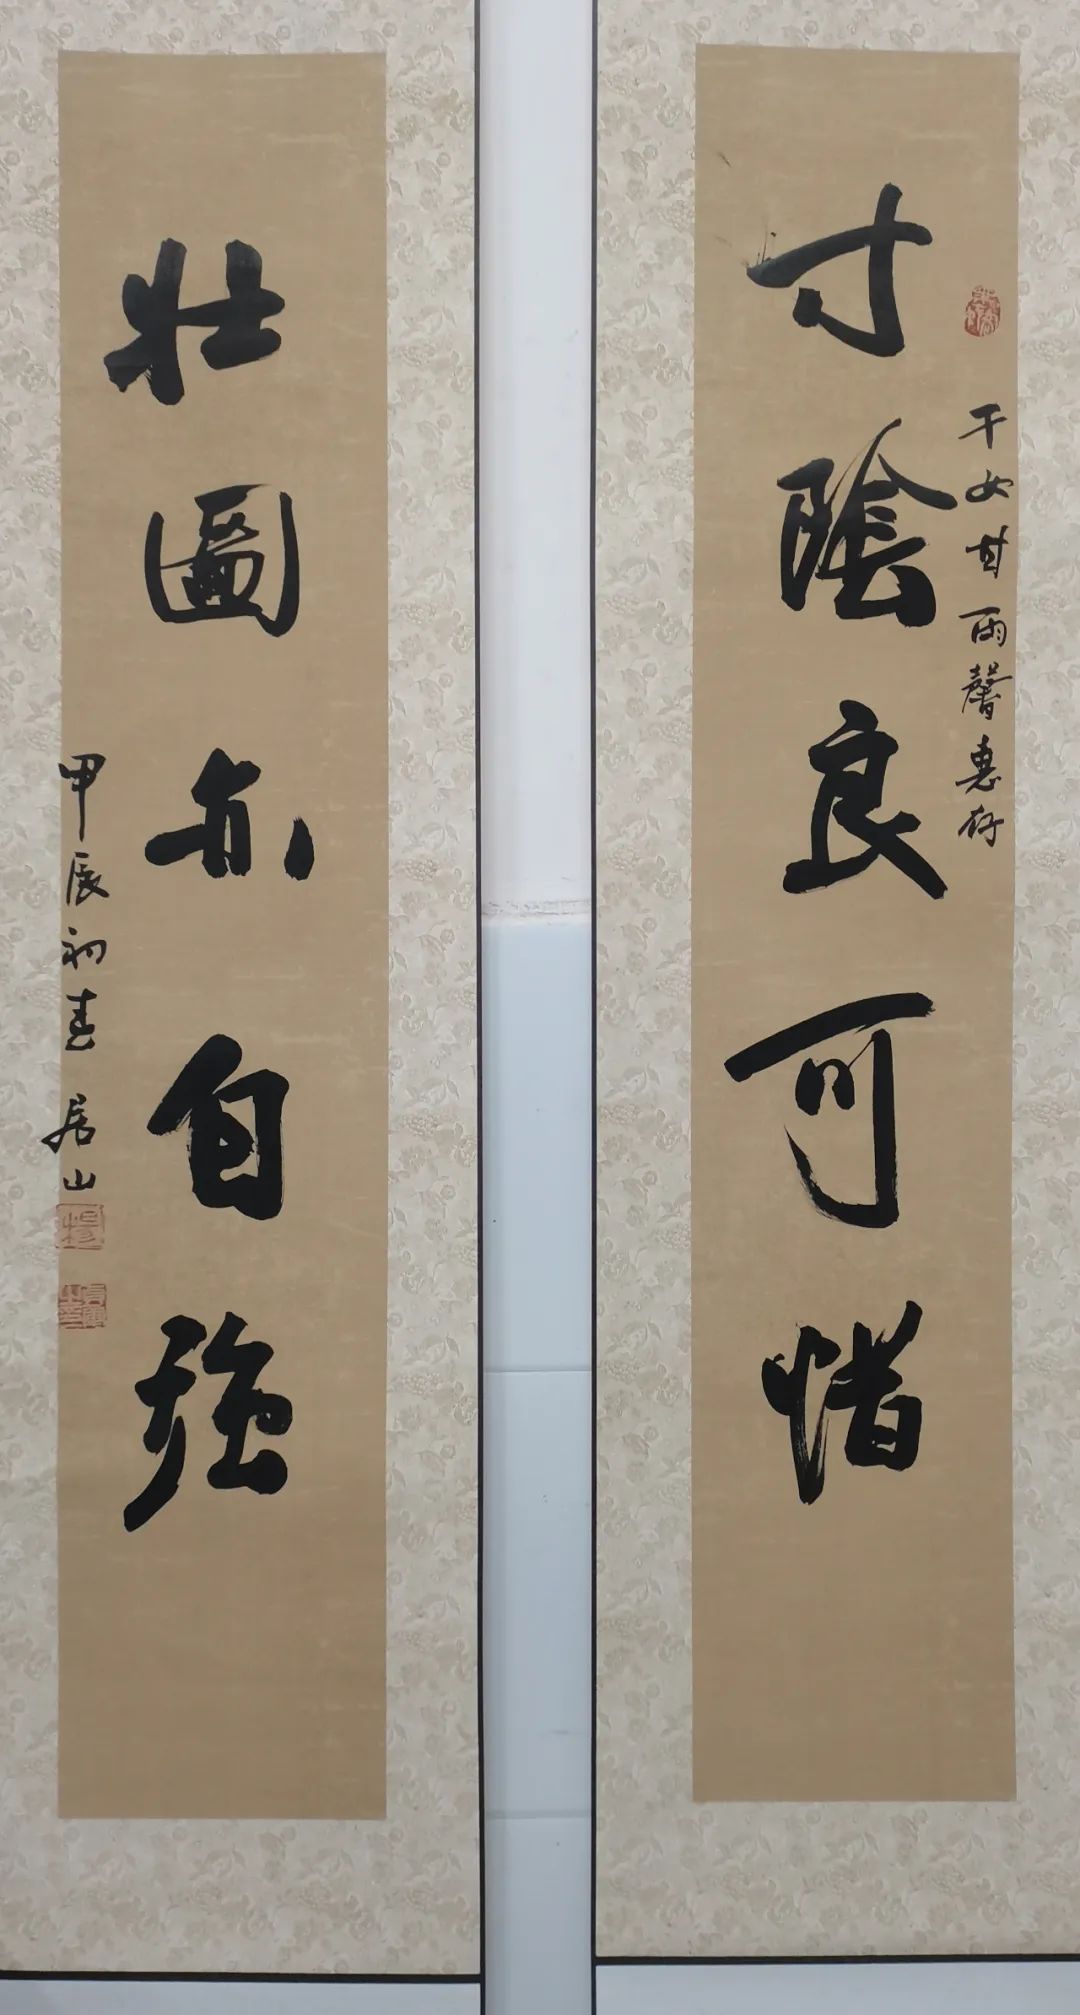 寸陰良可惜
干女甘雨馨惠存
壮圖亦自強
甲辰初春 居山